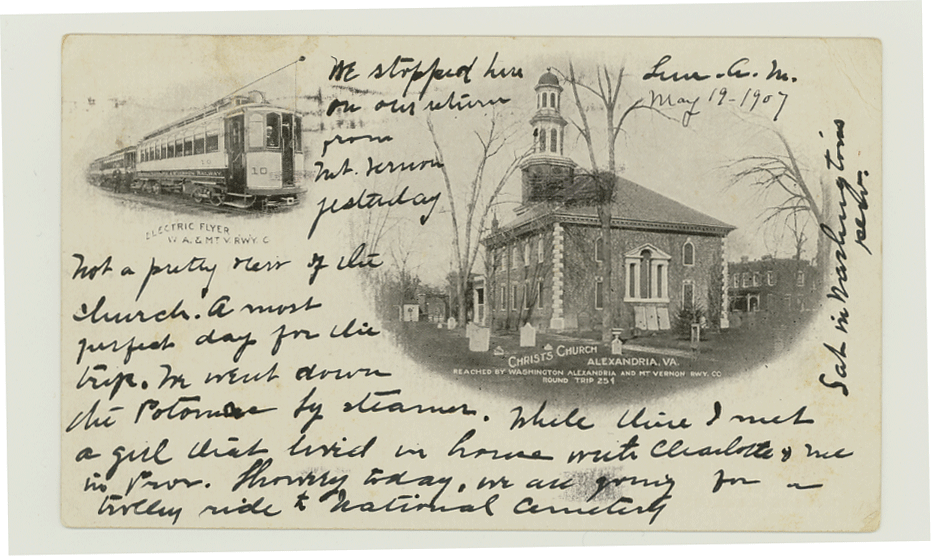 We stopped here
on our return
from
Mt. Vernon
yesterday
Sun. A. M.
May 19-1907
Sat in Washington's
pew.
10
ELECTRIC FLYER
W. A. & MT V. RWY. C
Not a pretty view of the
church. A most
perfect day for the
trip. We went down
the Potomac by steamer. While there I met
a girl that lived in house with Charlotte & me
in Prov. Showery today, we are going for a
trolley ride to National Cemetery
CHRIST'S CHURCH
ALEXANDRIA, VA.
REACHED BY WASHINGTON ALEXANDRIA AND MT VERNON RWY. CO
ROUND TRIP 25¢